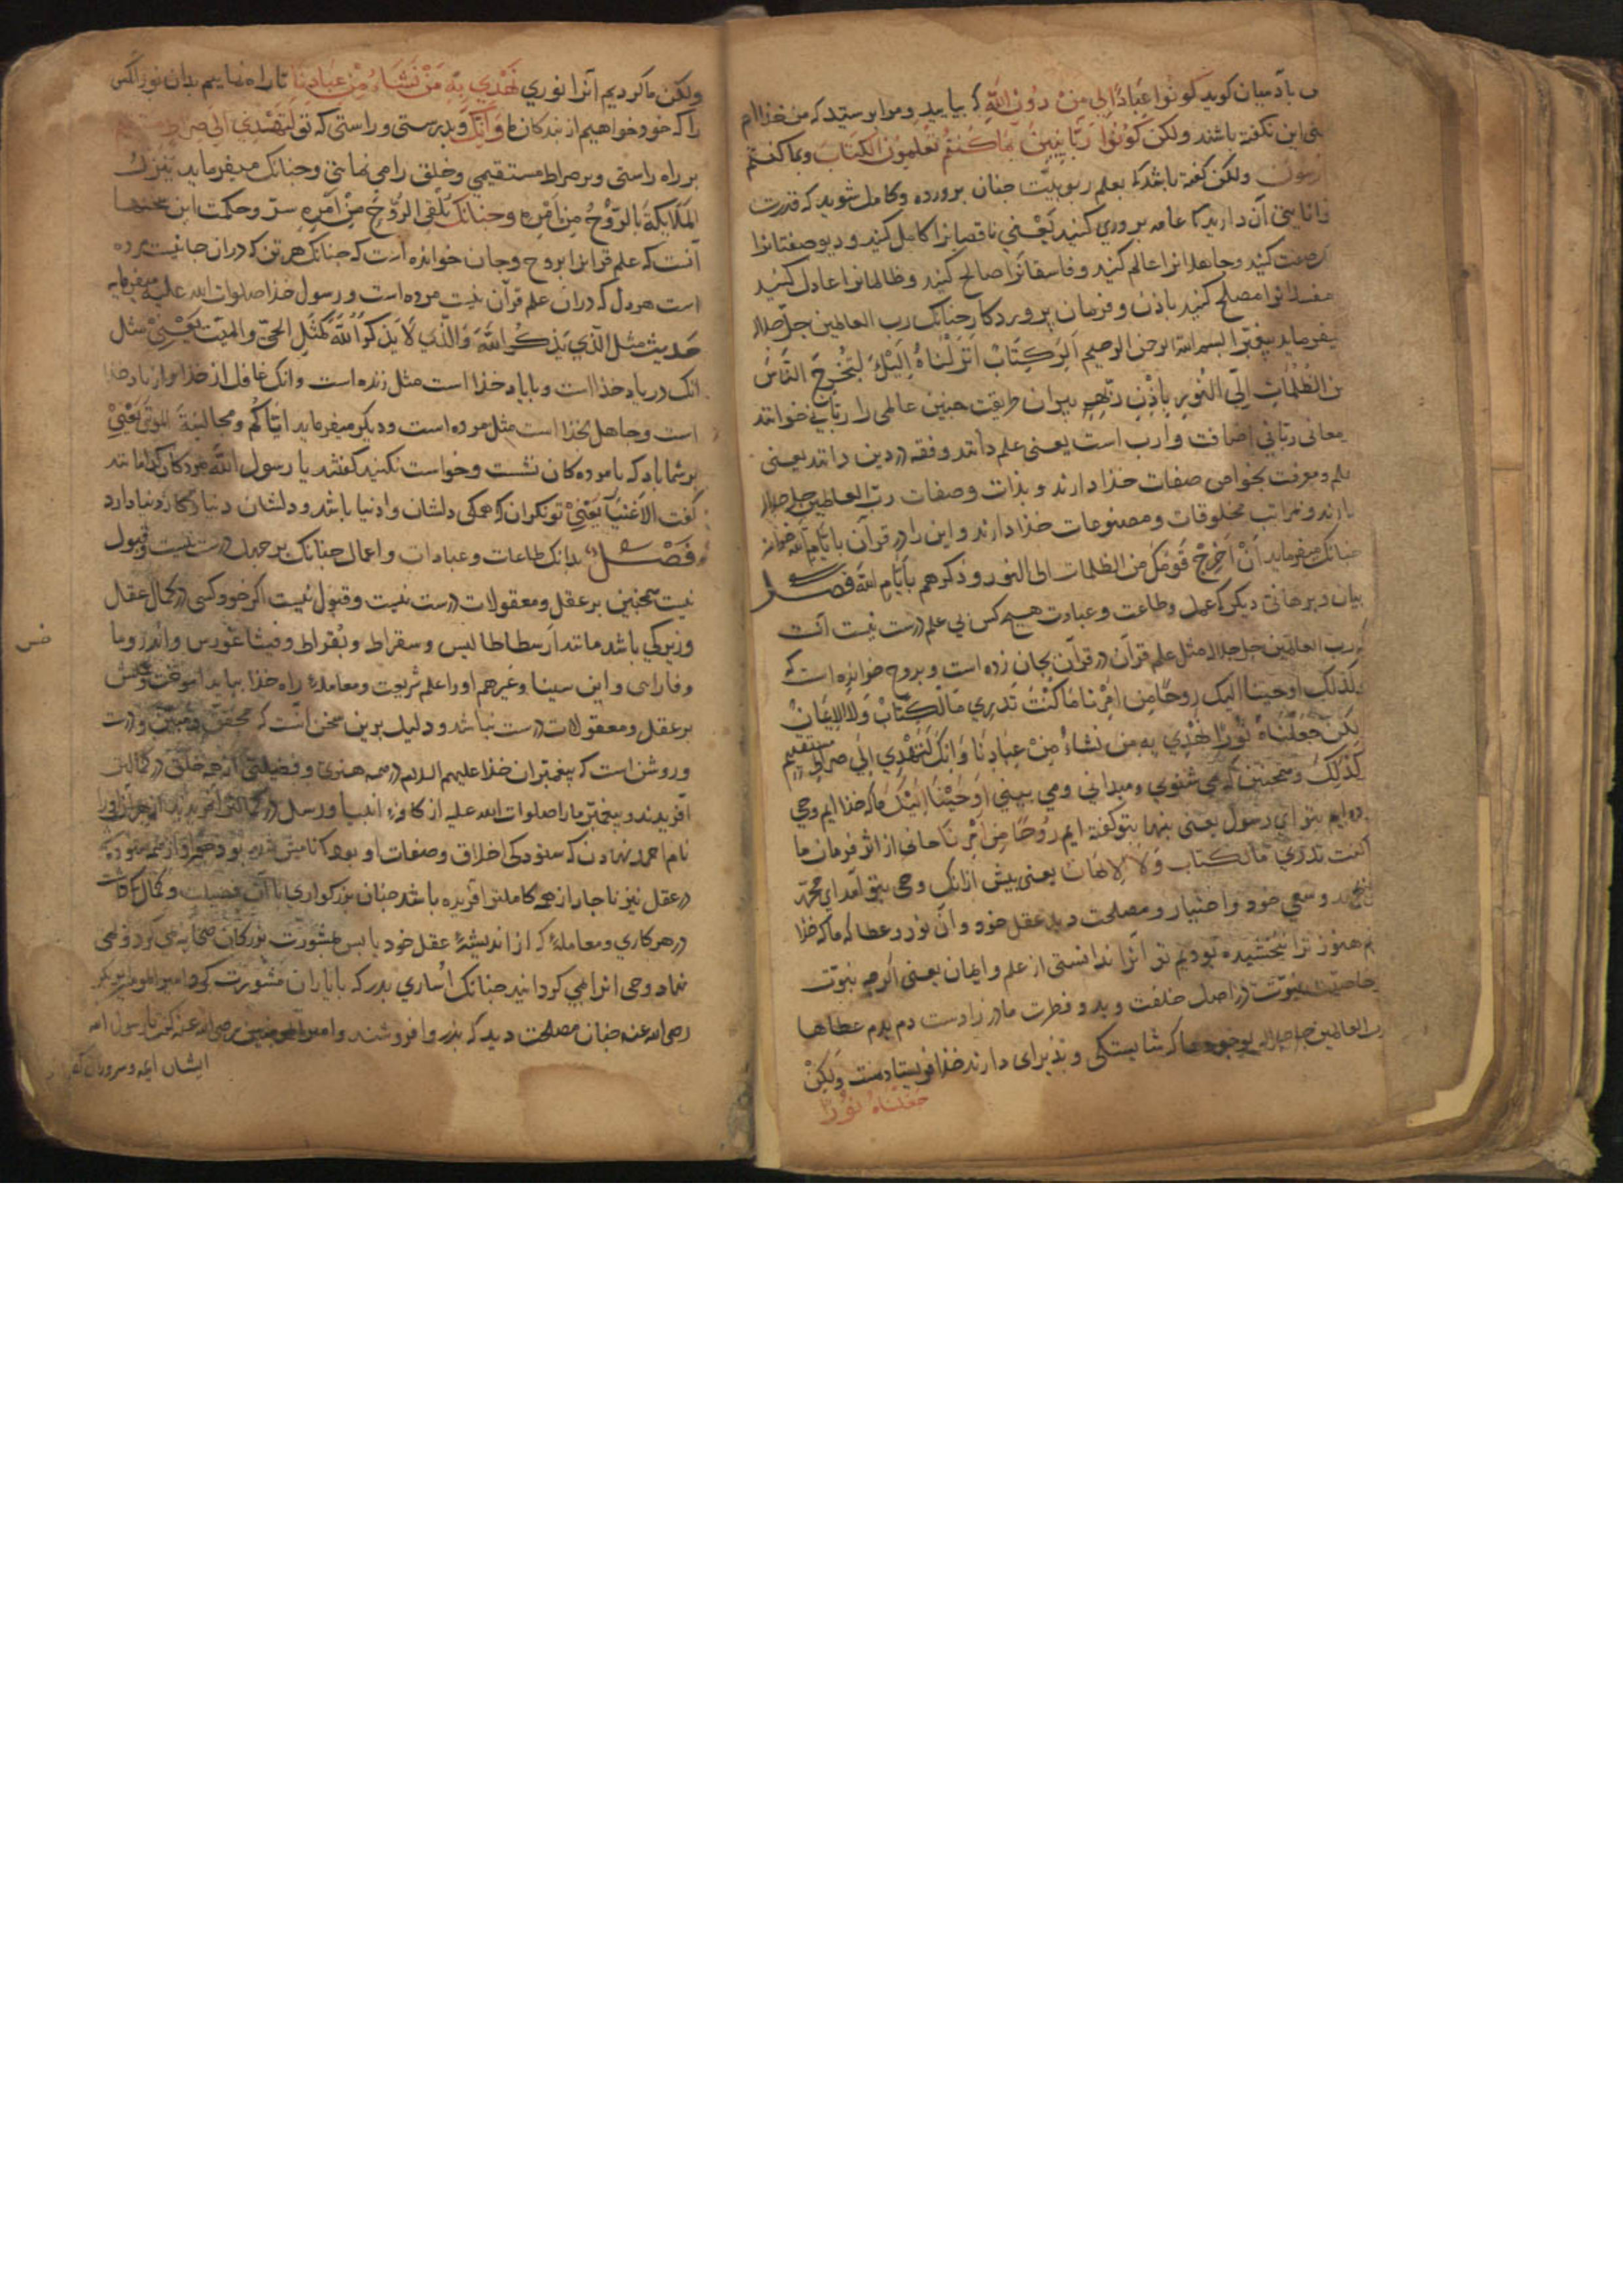 بآدمیان کوید کونوا عبادا لی من دون الله که بیایید و مرا بپرستید که من خذاام
این نکفته باشند ولکن کونوا ربانیین بما کنتم تعلمون الکتاب وبما کنتم
ولکن کفته باشد که بعلم ربوبیّت جنان برورده وکامل شوید که قدرت
آن دارید کا عامه بروری کنید یعنی ناقصانرا کامل کنید و دیوصفتانرا
کنید وجاهلانرا عالم کنید و فاسقانرا صالح کنید و ظالمانرا عادل کنید
مفسدانرا مصلح کنید باذن و فرمان پروردکار جنانک رب العالمین جل جلاله
میفرماید بیغمبرا بسم الله الرحمن الرحیم الر کتاب انزلناه الیک لتخرج الناس
من الظلمات الی النور باذن ربهم پیران طریقت جنین عالمی را ربانی خوانند
معانی ربانی اضافت وارب است یعنی علم دانند وفقه در دین دانند یعنی
علم ومعرفت بخواص صفات خذا دارند و بذات وصفات رب العالمین جل جلاله
دارند و مراتب مخلوقات و مصنوعات خذا دارند و این را در قرآن بایام الله خواند
جنانک میفرماید ان اخرج قومک من الظلمات الی النور و ذکرهم بایام الله فصل
بیان و برهانی دیکر که عمل وطاعت و عبادت هیچ کس بی علم درست نیست آنست
که رب العالمین جل جلاله مثل علم قرآن در قرآن بجان زده است و بروح خوانده است که
وکذلک اوحینا الیک روحا من امرنا ما کنت تدری ما الکتاب ولا الایمان
ولکن جعلناه نورا نهدی به من نشاء من عبادنا وانک لتهدی الی صراط مستقیم
کذلک و همجنین که می شنوی و میدانی ومی بینی اوحینا الیک ما که خذا ایم وحی
ایم بتو ای رسول یعنی بتو کفته ایم روحا من امرنا جانی از اثر فرمان ما
ما کنت تدری ما الکتاب ولا الایمان یعنی بیش ازانک وحی بتو آمد ای محمد
وسعی خود و اختیار و مصلحت دید عقل خود و آن نور و عطا که ما که خذا
هنوز ترا نبخشیده بودیم تو آنرا ندانستی از علم وایمان یعنی اکرجه نبوّت
نبوت در اصل خلقت و بدو فطرت مادر زادست دم بدم عطاها
رب العالمین جل جلاله که شایستکی و بذیرای دارند خذا فریستادست ولکن
جعلناه نورا
ولکن ما کردیم آنرا نوری نهدی به من نشاء من عبادنا تا راه نماییم بدان نور آنکس
را که خود خواهیم از بندکان ما وانک وبدرستی و راستی که تو لتهدی الی صراط مستقیم
بر راه راستی و بر صراط مستقیمی وخلق را می نمایی وجنانک میفرماید ینزل
الملایکة بالروح من امره وجنانک یلقی الروح من امره سرّ وحکمت این
آنست که علم قرآنرا بروح وجان خوانده است که جنانک هر تن که دران جا نیست مرده
است هر دل که دران علم قرآن نیست مرده است و رسول خذا صلوات الله علیه میفرماید
حدیث مثل الذی یذکر الله والذی لا یذکر الله کمثل الحی والمیت یعنی مثل
انک در یاد خذا است وبا یاد خذا است مثل زنده است وانک غافل از خذا و از یاد خذا
است وجاهل بخذا است مثل مرده است و دیکر میفرماید ایاکم ومجالسة الموتی یعنی
بر شما باد که با مردکان نشست وخواست نکنید کفتند یا رسول الله مردکان کدامانند
کفت الاغنیا یعنی توانکران که همکی دلشان وا دنیا باشد و دلشان دنیا و کار دنیا دارد
فصل بدانک طاعات و عبادات و اعمال جنانک بر جهل درست نیست وقبول
نیست همجنین بر عقل و معقولات درست نیست وقبول نیست اکر خود کسی در کمال عقل
وزیرکی باشد مانند ارسطاطالیس و سقراط و بقراط و فیثاغورس و
و فارابی و ابن سینا وغیرهم او را علم شریعت ومعامله راه خذا بباید آموخت وعملش
بر عقل و معقولات درست نباشد و دلیل برین سخن آنست که محقق و مبین و درست
وروشن است که پیغمبران خذا علیهم السلام در همه هنری و فضیلتی از همه خلق در کمالتر
آفریدند و پیغمبر ما را صلوات الله علیه از کافه انبیا ورسل در کمالتر آفریدند
نام احمد نهادن که ستودکی اخلاق و صفات او بود
در عقل نیز ناجار از همه کاملتر آفریده باشد جنان بزرکواری با آن فضیلت وکمال
در هر کاری ومعامله که از اندیشه عقل خود یا بس مشورت بزرکان صحابه می کرد
وحی آنرا می کردانید جنانک اساری بدر که با یاران مشورت کرد امیر المومنین ابوبکر
رضی الله عنه جنان مصلحت دید که بذر وا فروشند و امیر المومنین عمر رضی الله عنه کفت یا رسول الله
ایشان ایمه و سروران